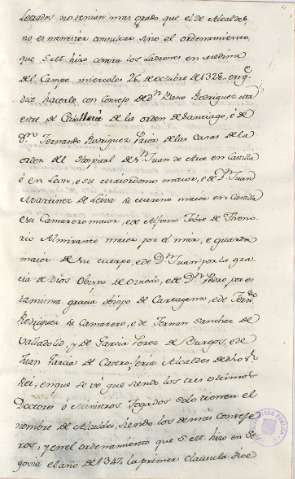 Letrados no tenian mas grado que el de Alcaldes,
no es menester comunicar, sino el ordenamiento
que S.ett. hizo contra los ladrones en medina
del Campo, miercoles 26 de octubre de 1328. en q.e
dize hacerle con Consejo de D.n Rodriguez
de Cavalleria de la orden de Santiago, é de
D.n Fernando Rodriguez Prior de las Casas de la
orden del Hospital de S.n Juan de Acre en Castilla
é en Leon, é su maiordomo maior, é de D.n Juan
Martinez de Leiva su merino maior en Castilla
é su Camarero maior, é de Alfonso Jofre de Theno-
rio Almirante maior por el mar, é guarda
maior de su cuerpo, é de D.n Juan por la gra-
cia de Dios Obispo de Oviedo, é de D.n Pedro por esa
misma gracia obispo de Cartagena, é de Fern.do
Rodriguez su Camarero, é de Fernan Sanchez de
Valladolid, y de Garcia Perez de Burgos, é de
Juan Garcia de Castro-feriz Alcaldes del
Rei, en que se vé que siendo los tres ultimos
Doctores ó Ministros Togados solo tienen el
nombre de Alcaldes, siendo los demás Conseje-
ros, y en el ordenamiento que S.ett. hizo en Se-
govia el año de 1347. la primera clausula dice